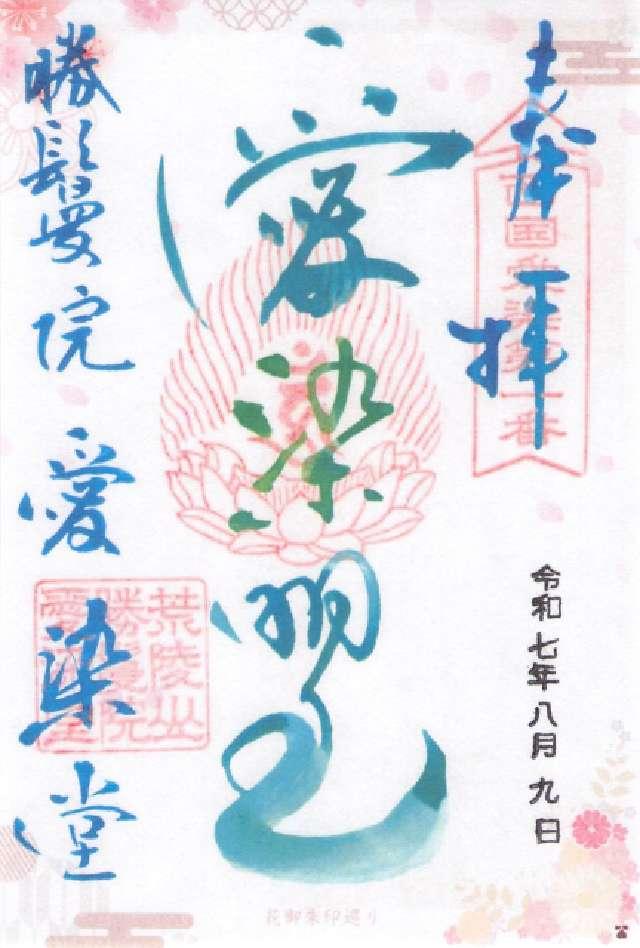 奉拝
西国愛染第一番
令和七年八月九日
愛染明王
勝鬘院 愛染堂
荒陵山
勝鬘院
愛染堂
花御朱印巡り